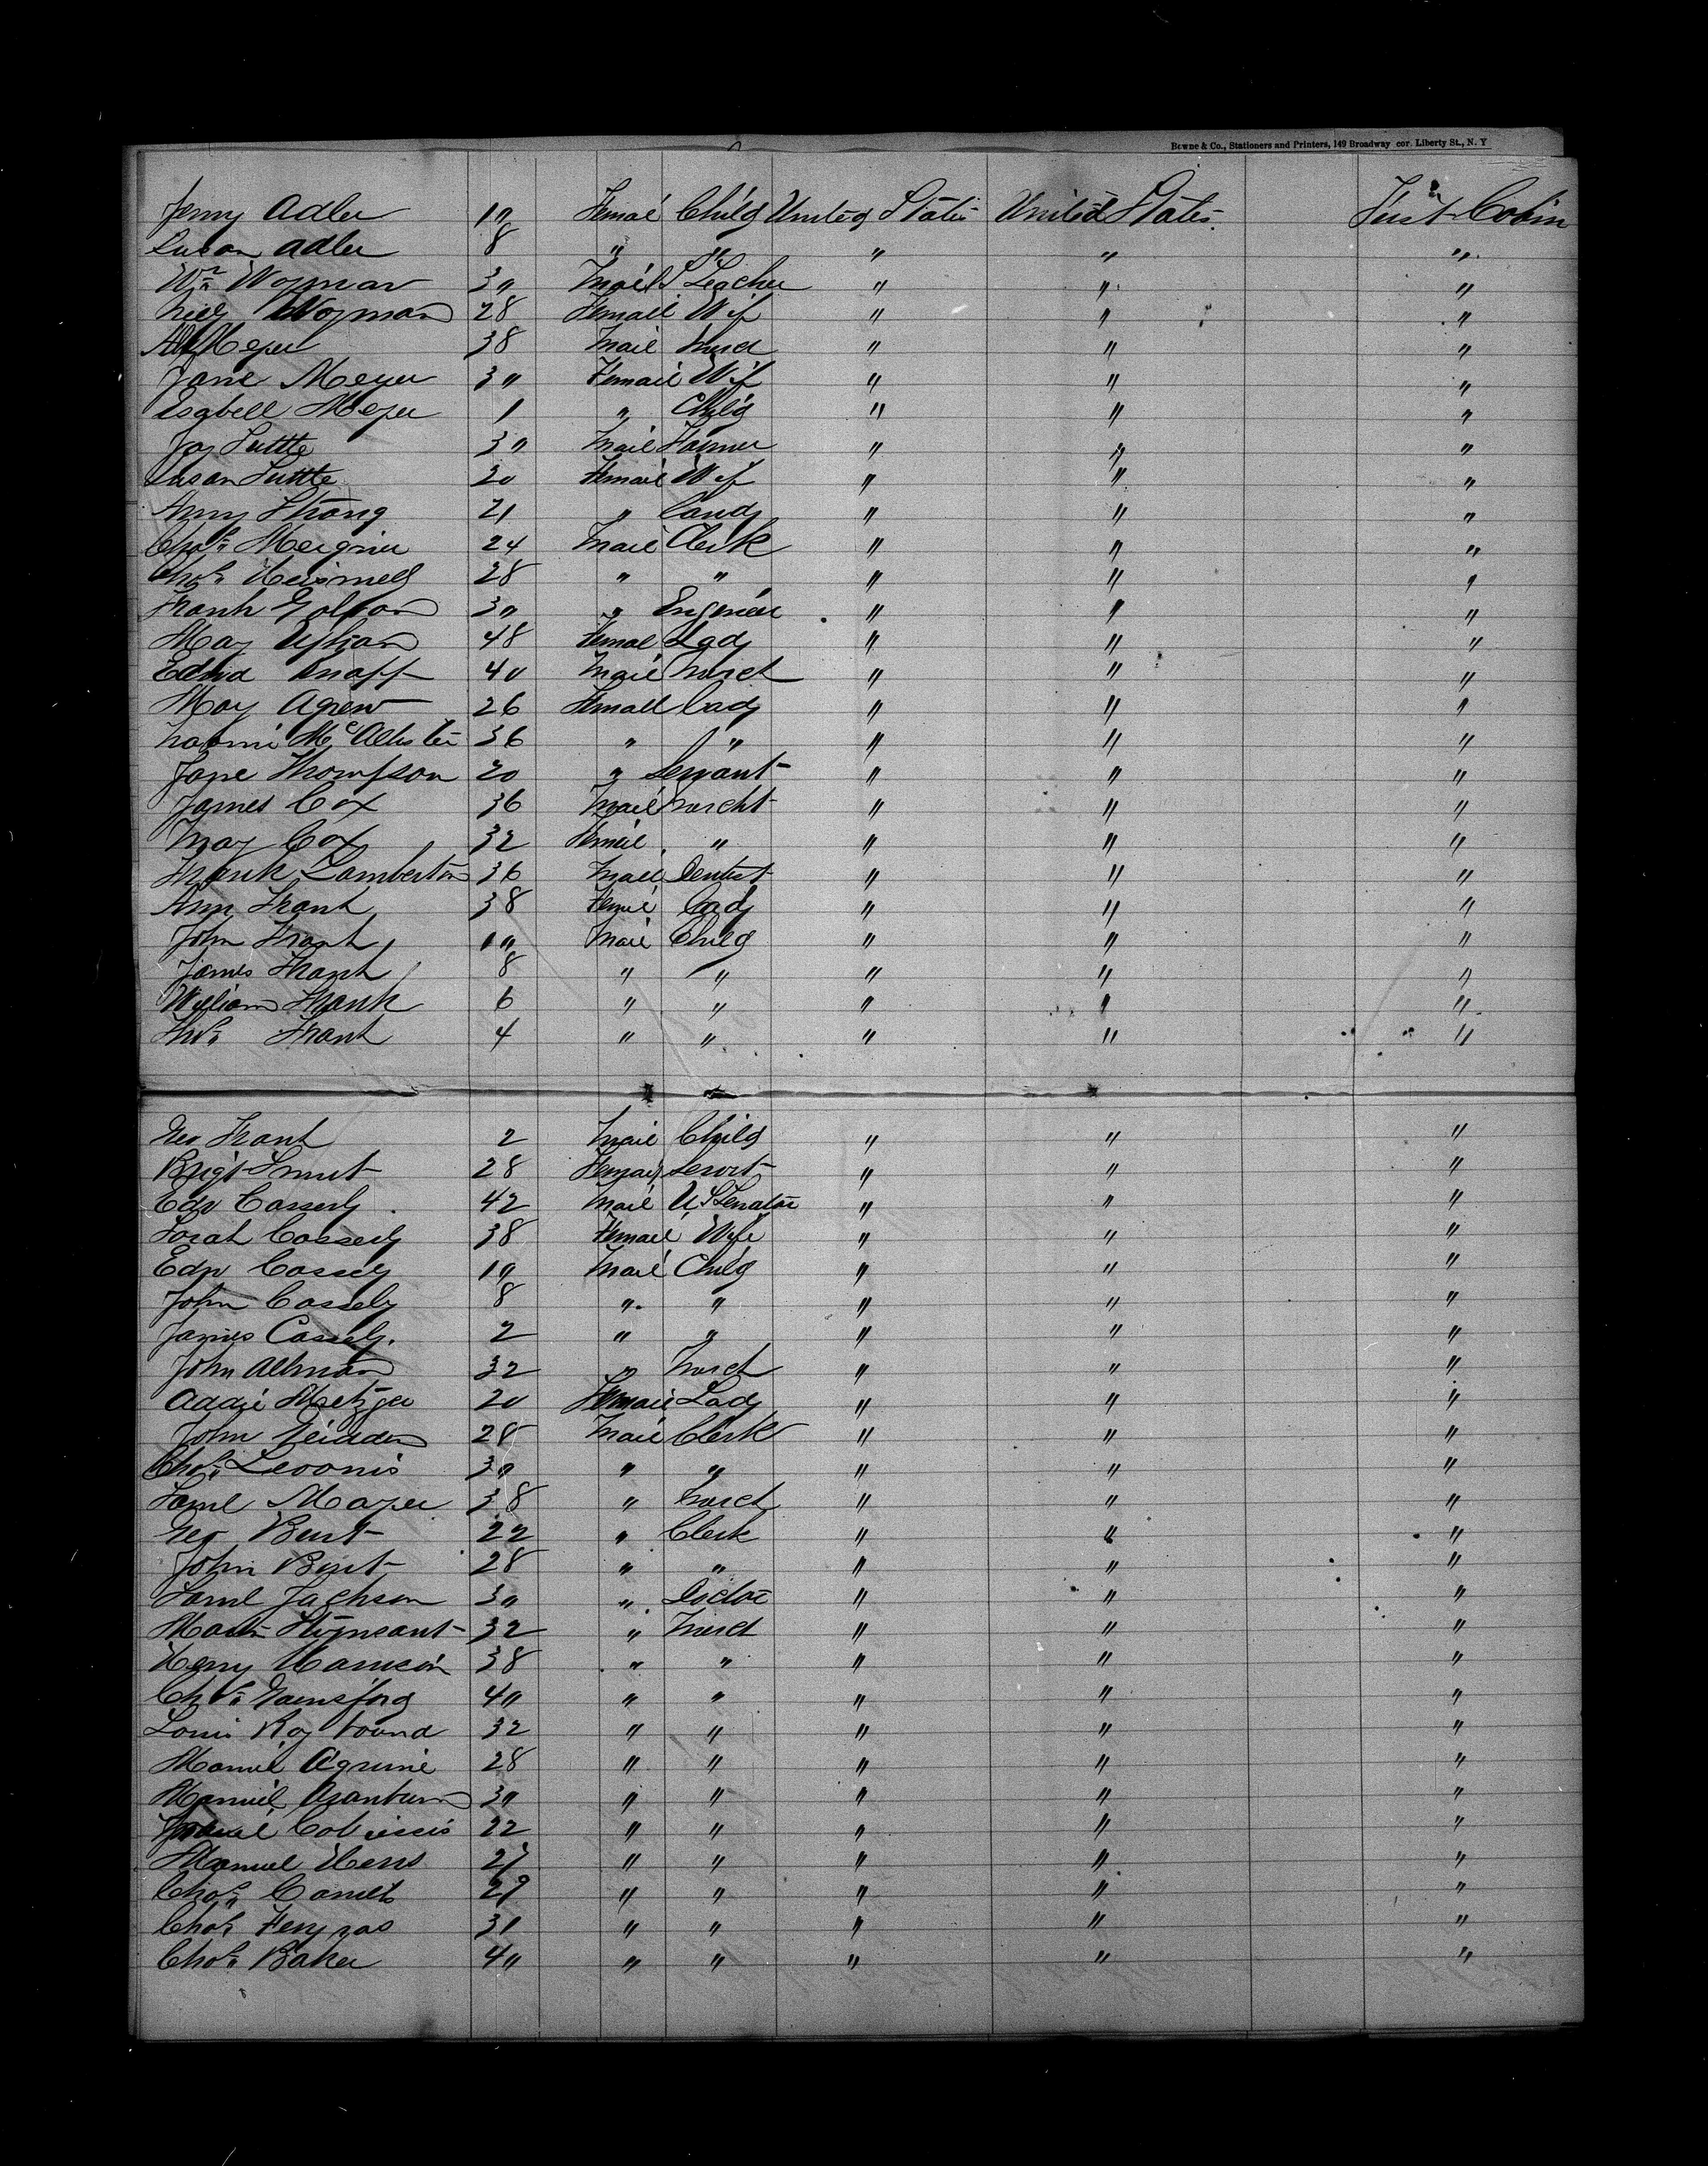 Bowne & Co., Stationers and Printers, 149 Broadway cor. Liberty St., N. Y
Jenny Adler 10 Female Child United States United States First Cabin
Susan Adler 8 " " " " "
Wm Wopman 30 Male S Teacher " " "
Wopman 28 Female Wif " " "
Meyer 38 Male Merch " " "
Jane Meyer 30 Female Wif " " "
Isabell Meyer 1 " Child " " "
Jos Tuttle 30 Male Farmer " " "
Susan Tuttle 20 Female Wif " " "
Amy Strong 21 " Lady " " "
Chas 24 Male Clerk " " "
Chas 28 " " " " "
Frank 30 " Engineer " " "
May Upham 48 Female Lady " " "
Edwd Knapp 40 Male Merch " " "
May Agnew 26 Female Lady " " "
Naomi McAllister 36 " " " " "
Jane Thompson 20 " Servant " " "
James Cox 36 Male Mercht " " "
May Cox 32 Female " " " "
Frank Lamberton 36 Male Dentist " " "
Ann Frank 38 Female Lady " " "
John Frank 10 Male Child " " "
James Frank 8 " " " " "
William Frank 6 " " " " "
Thos Frank 4 " " " " "
Geo Frank 2 Male Child " " "
Brigt Smut 28 Female Servt " " "
Edw Casserly 42 Male U.S Senator " " "
Sarah Casserly 38 Female Wife " " "
Edw Cassely 10 Male Child " " "
John Cassely 8 " " " " "
James Cassely. 2 " " " " "
John Altman 32 " Merch " " "
Addie Metzger 20 Female Lady " " "
John 28 Male Clerk " " "
Chas Leronis 30 " " " " "
Saml Mayer 38 " Merch " " "
Geo Burt 22 " Clerk " " "
John Burt 28 " " " " "
Saml Jackson 30 " Doctor " " "
32 " Merch " " "
Henry Harrison 38 " " " " "
Chas Gainsford 40 " " " " "
Louis Raybound 32 " " " " "
Manuel Aguirre 28 " " " " "
Manuel 30 " " " " "
22 " " " " "
Manuel 27 " " " " "
Chas 29 " " " " "
Chas 31 " " " " "
Chas Baker 40 " " " " "